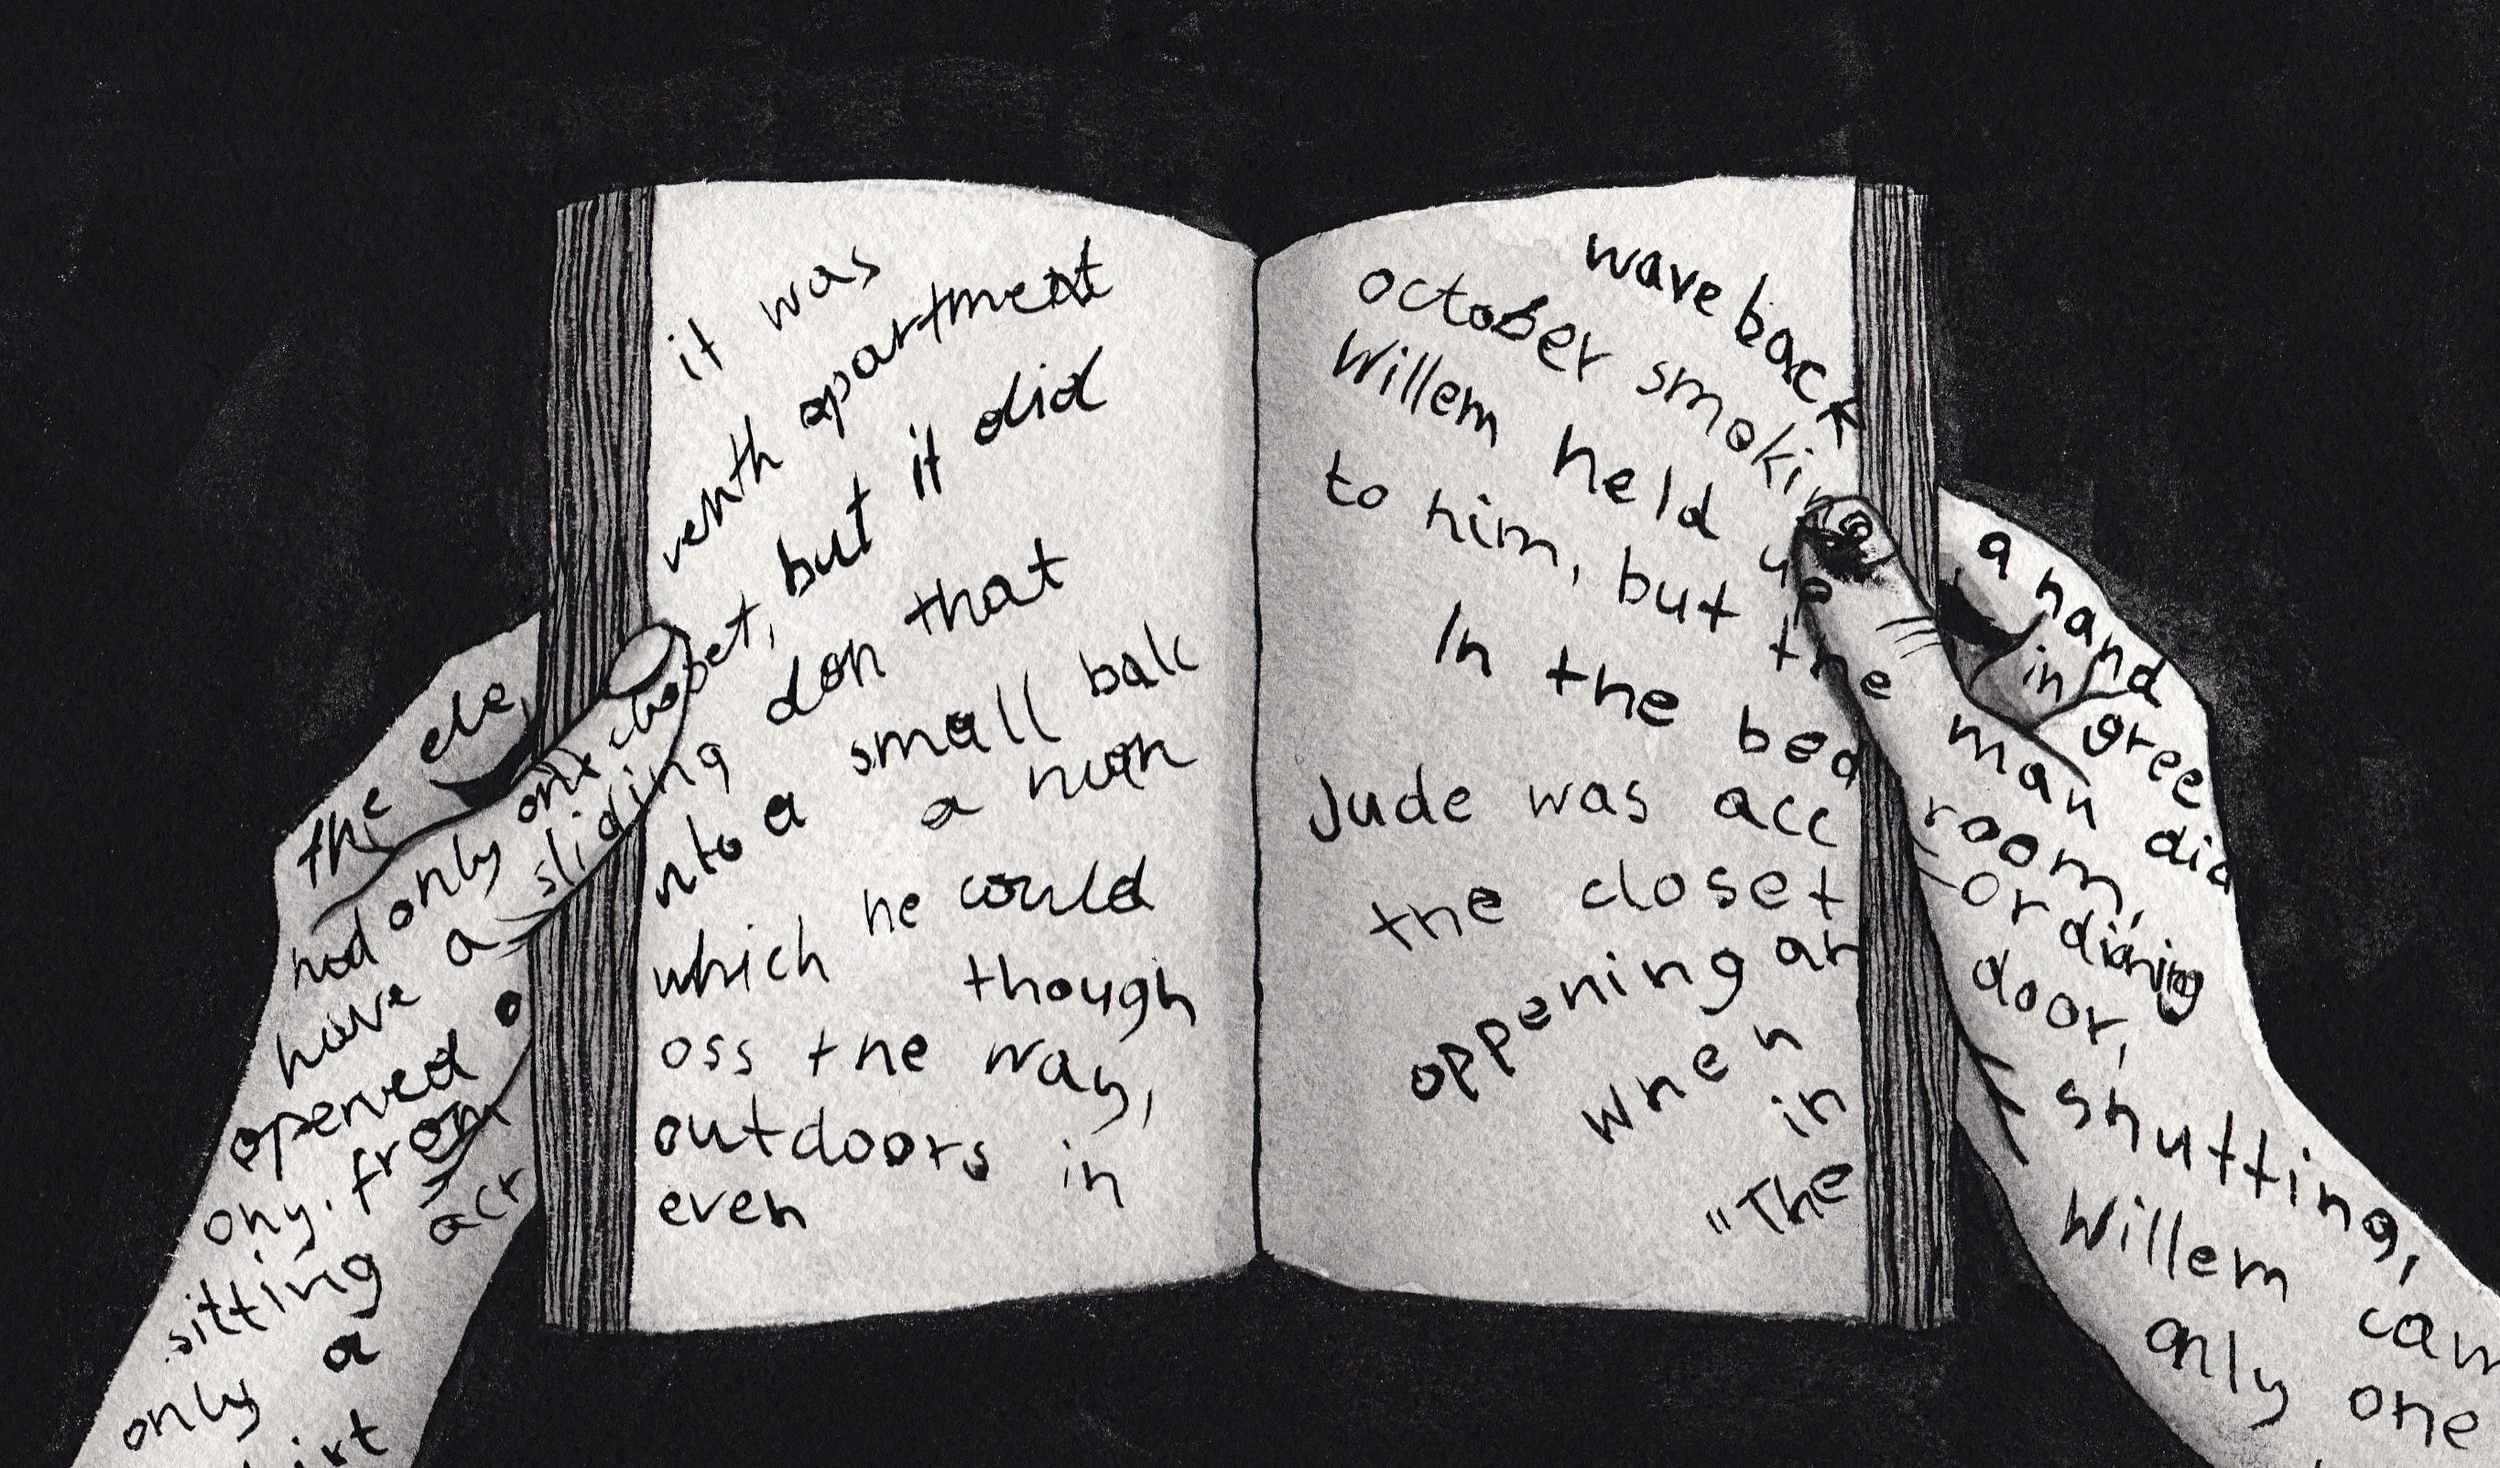 it was
the ele, venth apartment
had only one closet, but it did
have a sliding don that
opened onto a small balc
ony. from which he could
a man
sitting acr oss the way,
though
only a
outdoors in
irt even
wave back
october smoking
Willem held up a hand in gree
to him, but the man did
In the bed room,
Jude was acc ordioning
the closet door,
oppening an shutting,
when Willem cam
in
"The only one